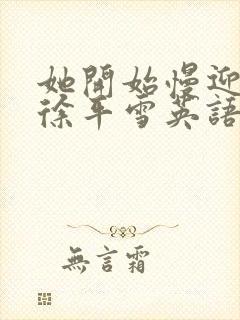 她開始慢迎
徐平雪英語
無言霜